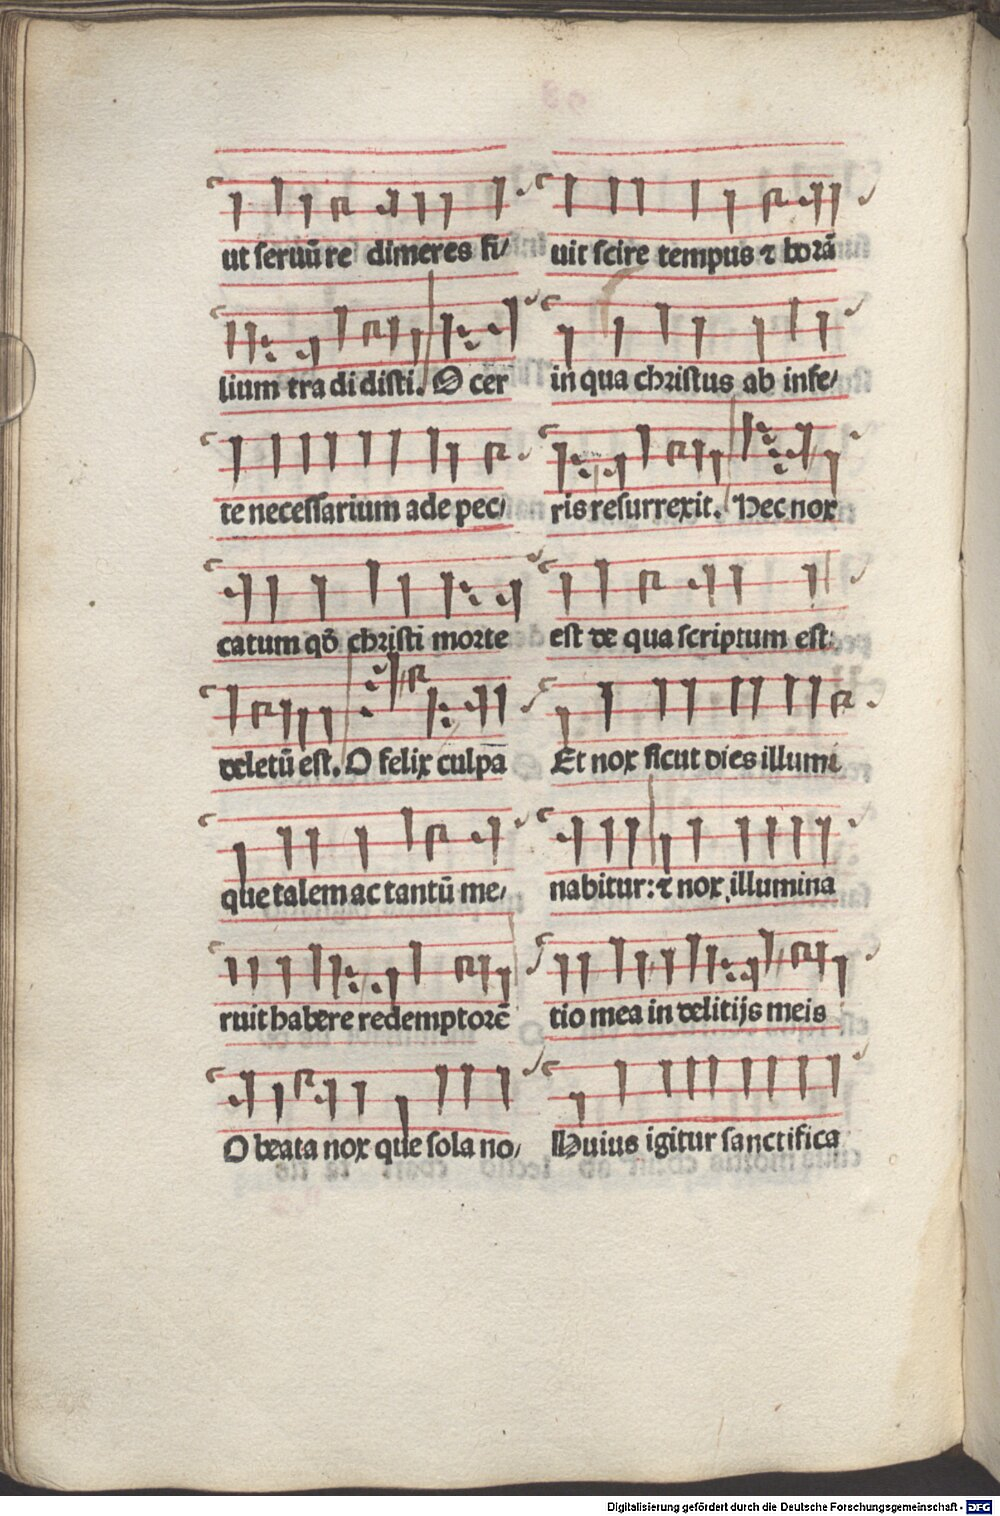 ut seruū re dimeres fi/
lium tra di disti. O cer
te necessarium ade pec/
catum qō christi morte
deletū est. O felix culpa
que talem ac tantū me/
ruit habere redemptorē
O beata nox que sola no/
uit scire tempus ⁊ horā
in qua christus ab infe/
ris resurrexit. Hec nox
est de qua scriptum est:
Et nox sicut dies illumi
nabitur: ⁊ nox illumina
tio mea in delitijs meis
Huius igitur sanctifica
Digitalisierung gefördert durch die Deutsche Forschungsgemeinschaft - DFG